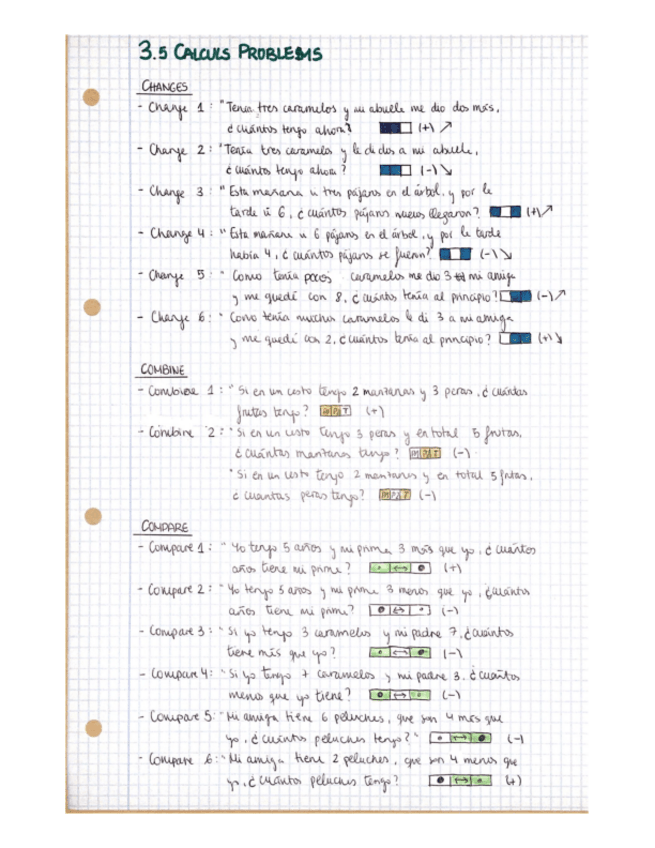 3.5 CALCULS PROBLEMS
CHANGES
- Change 1: "Tenía tres caramelos y mi abuela me dio dos más,
¿cuántos tengo ahora? (+) ↗
- Change 2: "Tenía tres caramelos y le di dos a mi abuela,
¿cuántos tengo ahora? (-) ↘
- Change 3: "Esta mañana vi tres pájaros en el árbol, y por la
tarde vi 6, ¿cuántos pájaros nuevos llegaron? (+) ↗
- Change 4: "Esta mañana vi 6 pájaros en el árbol, y por la tarde
había 4, ¿cuántos pájaros se fueron? (-) ↘
- Change 5: "Como tenía pocos caramelos me dio 3 mi amiga
y me quedé con 8, ¿cuántos tenía al principio? (-) ↗
- Change 6: "Como tenía muchos caramelos le di 3 a mi amiga
y me quedé con 2, ¿cuántos tenía al principio? (+) ↘
COMBINE
- Combine 1: "Si en un cesto tengo 2 manzanas y 3 peras, ¿cuántas
frutas tengo? (+)
- Combine 2: "Si en un cesto tengo 3 peras y en total 5 frutas,
¿cuántas manzanas tengo? (-)
"Si en un cesto tengo 2 manzanas y en total 5 frutas,
¿cuantas peras tengo? (-)
COMPARE
- Compare 1: "Yo tengo 5 años y mi prima 3 más que yo, ¿cuántos
años tiene mi prima? (+)
- Compare 2: "Yo tengo 5 años y mi prima 3 menos que yo, ¿cuántos
años tiene mi prima? (-)
- Compare 3: "Si yo tengo 3 caramelos y mi padre 7, ¿cuántos
tiene más que yo? (-)
- Compare 4: "Si yo tengo 7 caramelos y mi padre 3, ¿cuántos
menos que yo tiene? (-)
- Compare 5: "Mi amiga tiene 6 peluches, que son 4 más que
yo, ¿cuántos peluches tengo?" (-)
- Compare 6: "Mi amiga tiene 2 peluches, que son 4 menos que
yo, ¿cuántos peluches tengo? (+)